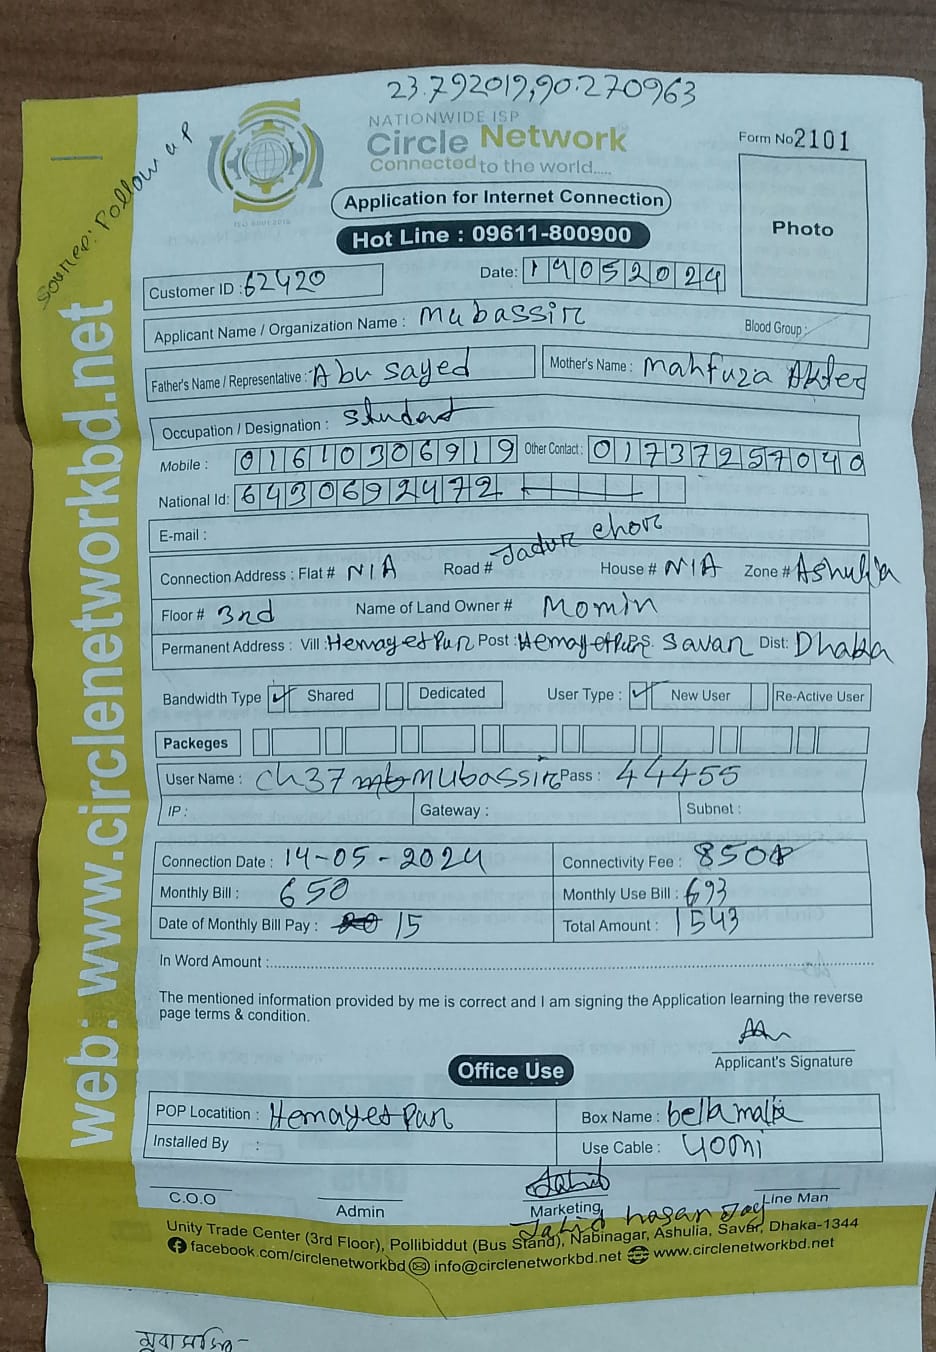 23.792019,90.270963
Source: Follow up
NATIONWIDE ISP
Circle Network
Connected to the world.....
ISO 9001:2015
Form No 2101
Photo
Application for Internet Connection
Hot Line : 09611-800900
Customer ID : 62420
Date: 14052024
Applicant Name / Organization Name : Mubassir
Blood Group :
Father's Name / Representative : Abu sayed
Mother's Name : Mahfuza Akter
Occupation / Designation : Student
Mobile : 01610306919 Other Contact : 01737257040
National Id: 6430692472
E-mail :
Connection Address : Flat # N/A Road # Jadur chor House # N/A Zone # Ashulia
Floor # 3rd Name of Land Owner # Momin
Permanent Address : Vill : HemayetPur Post : HemayetPur P.S. Savar Dist: Dhaka
Bandwidth Type ✓ Shared Dedicated User Type : ✓ New User Re-Active User
Packeges
User Name : ch37 mubassir Pass : 44455
IP : Gateway : Subnet :
Connection Date : 14-05-2024 Connectivity Fee : 850
Monthly Bill : 650 Monthly Use Bill : 693
Date of Monthly Bill Pay : 15 Total Amount : 1543
In Word Amount :
The mentioned information provided by me is correct and I am signing the Application learning the reverse
page terms & condition.
Applicant's Signature
Office Use
POP Locatition : HemayetPur Box Name : bella malik
Installed By : Use Cable : 40mi
C.O.O Admin Marketing Line Man
Jahid hasan Joy
Unity Trade Center (3rd Floor), Pollibiddut (Bus Stand), Nabinagar, Ashulia, Savar, Dhaka-1344
facebook.com/circlenetworkbd info@circlenetworkbd.net www.circlenetworkbd.net
web: www.circlenetworkbd.net